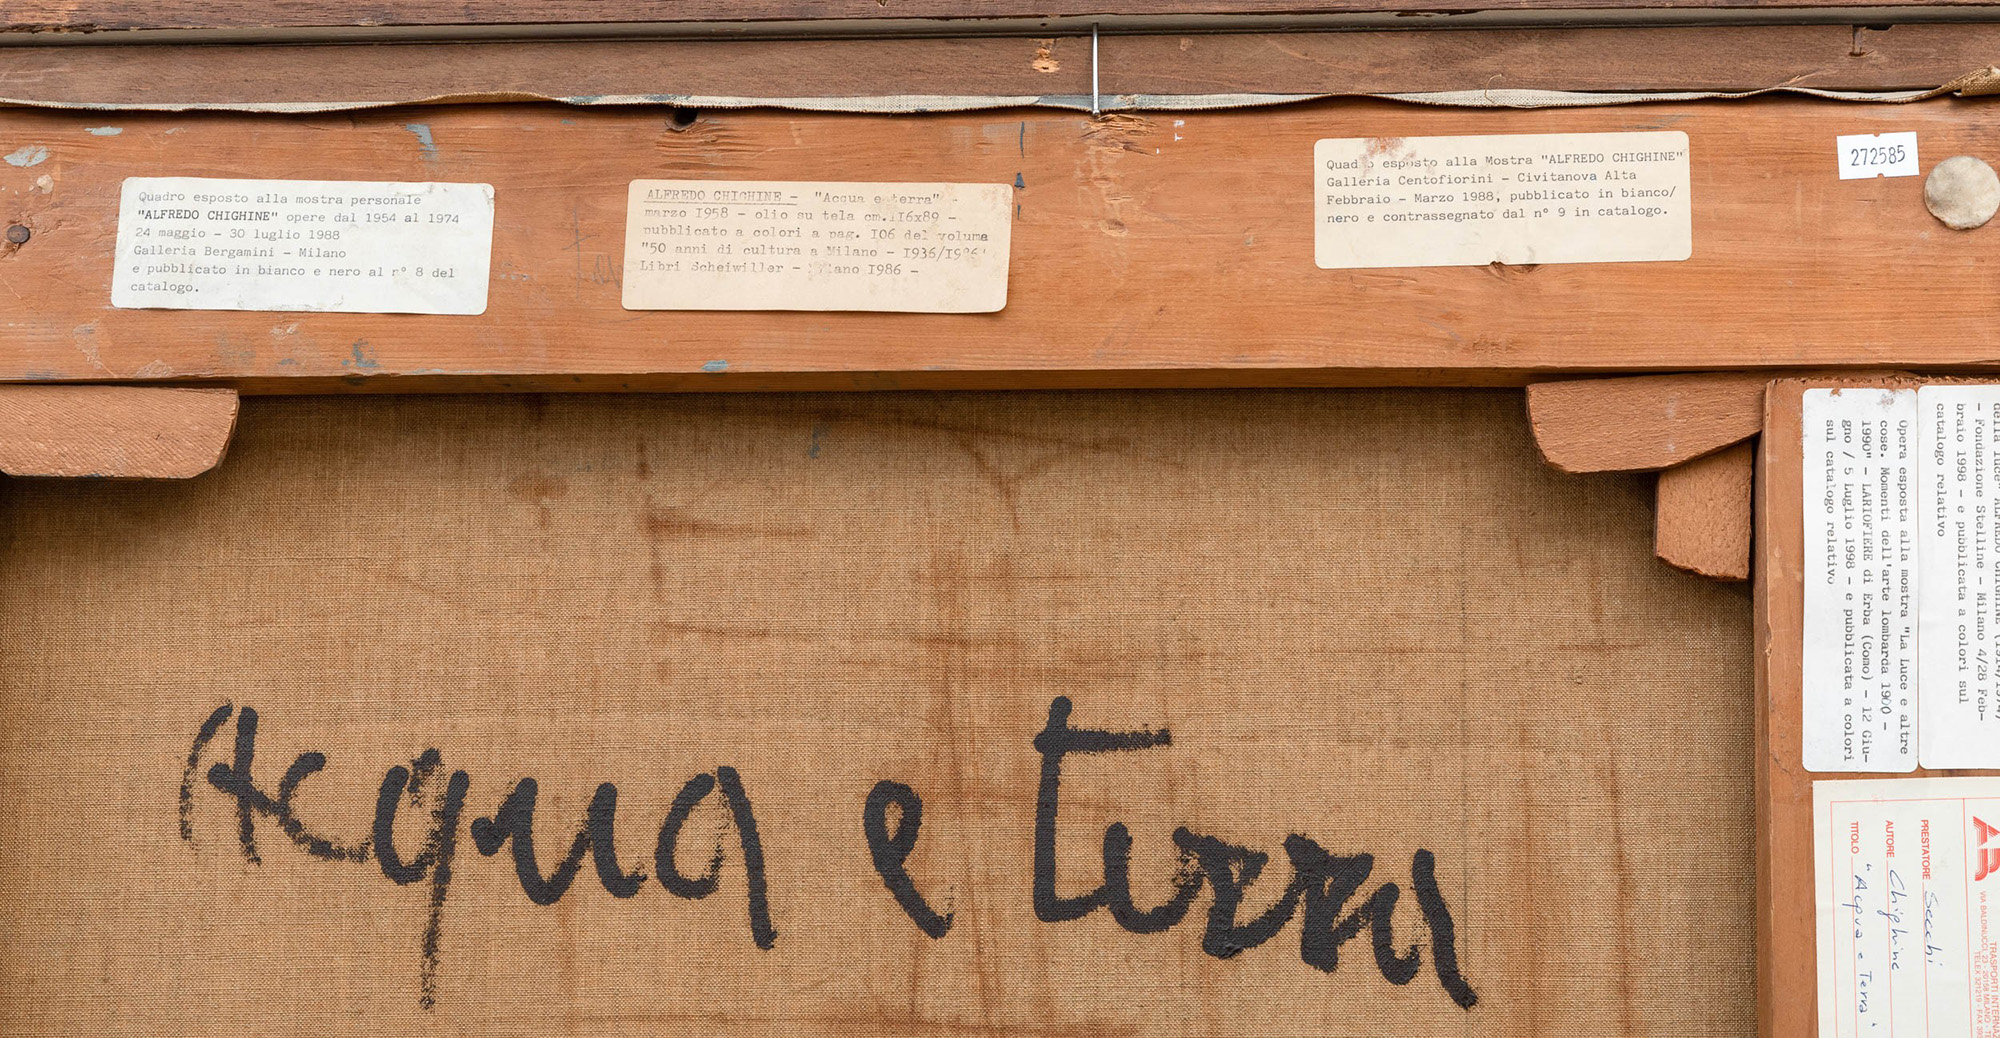 Quadro esposto alla mostra personale
"ALFREDO CHIGHINE" opere dal 1954 al 1974
24 maggio - 30 luglio 1988
Galleria Bergamini - Milano
e pubblicato in bianco e nero al n° 8 del
catalogo.
ALFREDO CHIGHINE - "Acqua e terra" -
marzo I958 - olio su tela cm.II6x89 -
pubblicato a colori a pag. I06 del volume
"50 anni di cultura a Milano - I936/I986"
Libri Scheiwiller - Milano I986 -
Quadro esposto alla Mostra "ALFREDO CHIGHINE"
Galleria Centofiorini - Civitanova Alta
Febbraio - Marzo 1988, pubblicato in bianco/
nero e contrassegnato dal n° 9 in catalogo.
272585
della luce" ALFREDO CHIGHINE (1914/1974)
- Fondazione Stelline - Milano 4/28 Feb-
braio 1998 - e pubblicata a colori sul
catalogo relativo
Opera esposta alla mostra "La Luce e altre
cose. Momenti dell'arte lombarda 1900 -
1990" - LARIOFIERE di Erba (Como) - 12 Giu-
gno / 5 Luglio 1998 - e pubblicata a colori
sul catalogo relativo
Acqua e terra
TRASPORTI INTERNAZ
VIA BALDINUCCI, 23 - 20158 MILANO
TELEX 321219 - FAX
PRESTATORE Secchi
AUTORE Chighine
TITOLO "Acqua e Terra"